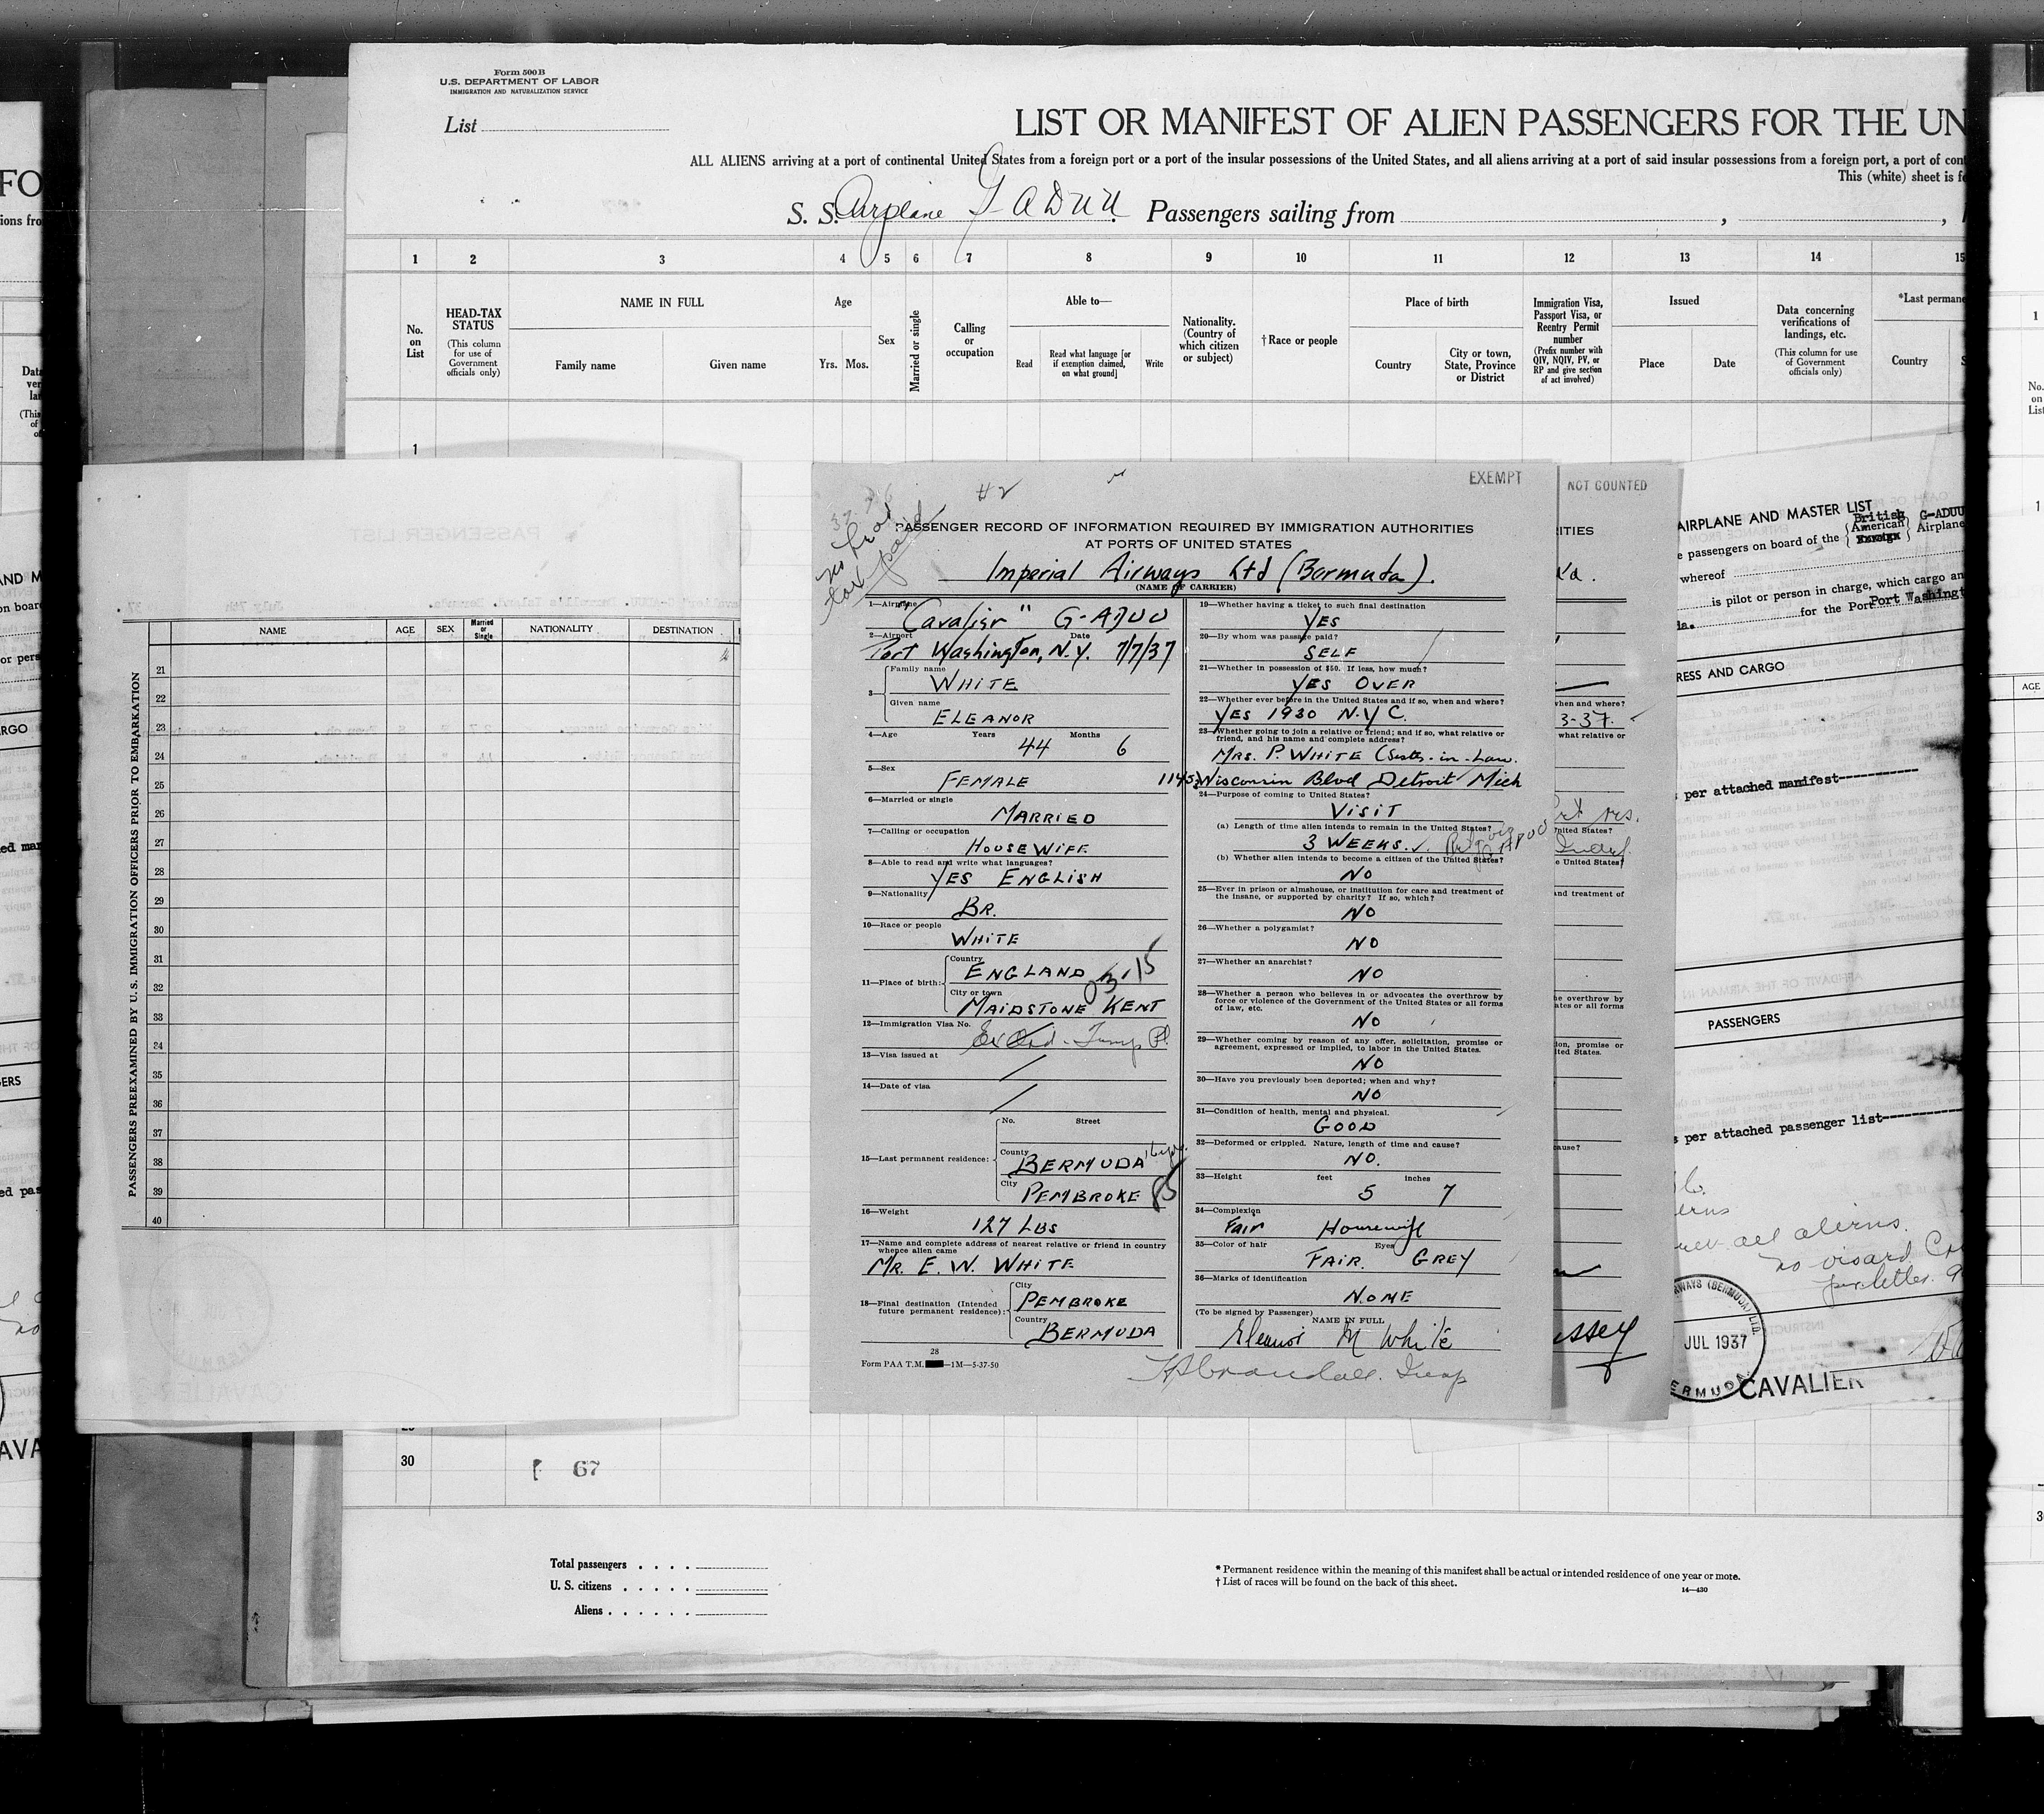 Form 500 B
U.S. DEPARTMENT OF LABOR
IMMIGRATION AND NATURALIZATION SERVICE
List
LIST OR MANIFEST OF ALIEN PASSENGERS FOR THE UN
ALL ALIENS arriving at a port of continental United States from a foreign port or a port of the insular possessions of the United States, and all aliens arriving at a port of said insular possessions from a foreign port, a port of cont
This (white) sheet is fo
S. S. Airplane G-ADUU. Passengers sailing from
1 2 3 4 5 6 7 8 9 10 11 12 13 14 15
No. on List
HEAD-TAX STATUS
(This column for use of Government officials only)
NAME IN FULL
Family name Given name
Age
Yrs. Mos.
Sex
Married or single
Calling or occupation
Able to—
Read
Read what language [or if exemption claimed, on what ground]
Write
Nationality. (Country of which citizen or subject)
†Race or people
Place of birth
Country
City or town, State, Province or District
Immigration Visa, Passport Visa, or Reentry Permit number
(Prefix number with QIV, NQIV, PV, or RP and give section of act involved)
Issued
Place Date
Data concerning verifications of landings, etc.
(This column for use of Government officials only)
*Last permane
Country
1
PASSENGERS PREEXAMINED BY U. S. IMMIGRATION OFFICERS PRIOR TO EMBARKATION
NAME AGE SEX Married or Single NATIONALITY DESTINATION
21
22
23
24
25
26
27
28
29
30
31
32
33
34
35
36
37
38
39
40
#2
EXEMPT
no head tax paid
PASSENGER RECORD OF INFORMATION REQUIRED BY IMMIGRATION AUTHORITIES
AT PORTS OF UNITED STATES
Imperial Airways Ltd (Bermuda).
(NAME OF CARRIER)
1—Airplane
"Cavalier" G-ADUU
2—Airport Date
Port Washington, N.Y. 7/7/37
3
Family name
WHITE
Given name
ELEANOR
4—Age Years Months
44 6
5—Sex
FEMALE
6—Married or single
MARRIED
7—Calling or occupation
HOUSEWIFE
8—Able to read and write what languages?
YES ENGLISH
9—Nationality
BR.
10—Race or people
WHITE
11—Place of birth:
Country
ENGLAND
03-15
City or town
MAIDSTONE KENT
12—Immigration Visa No.
13—Visa issued at
/
14—Date of visa
/
15—Last permanent residence:
No. Street
County
BERMUDA
City
PEMBROKE 85
16—Weight
127 LBS
17—Name and complete address of nearest relative or friend in country whence alien came
MR. E. W. WHITE
18—Final destination (Intended future permanent residence):
City
PEMBROKE
Country
BERMUDA
28
Form PAA T.M. —1M—5-37-50
19—Whether having a ticket to such final destination
YES
20—By whom was passage paid?
SELF
21—Whether in possession of $50. If less, how much?
YES OVER
22—Whether ever before in the United States and if so, when and where?
YES 1930 N.Y.C.
23—Whether going to join a relative or friend; and if so, what relative or friend, and his name and complete address?
MRS. P. WHITE (Sister-in-Law.
11453 Wisconsin Blvd Detroit Mich
24—Purpose of coming to United States?
VISIT
(a) Length of time alien intends to remain in the United States?
3 WEEKS.
(b) Whether alien intends to become a citizen of the United States?
NO
25—Ever in prison or almshouse, or institution for care and treatment of the insane, or supported by charity? If so, which?
NO
26—Whether a polygamist?
NO
27—Whether an anarchist?
NO
28—Whether a person who believes in or advocates the overthrow by force or violence of the Government of the United States or all forms of law, etc.
NO
29—Whether coming by reason of any offer, solicitation, promise or agreement, expressed or implied, to labor in the United States.
NO
30—Have you previously been deported; when and why?
NO
31—Condition of health, mental and physical.
GOOD
32—Deformed or crippled. Nature, length of time and cause?
NO.
33—Height feet inches
5 7
34—Complexion
Fair Housewife
35—Color of hair Eyes
FAIR. GREY
36—Marks of identification
NONE
(To be signed by Passenger) NAME IN FULL
Eleanor M White
NOT COUNTED
RITIES
when and where?
3-37.
what relative or
United States?
e United States?
and treatment of
he overthrow by
ates or all forms
ion, promise or
ited States.
cause?
ssey
AIRPLANE AND MASTER LIST
e passengers on board of the { British American Foreign } Airplane G-ADUU
whereof
is pilot or person in charge, which cargo an
da. for the Port Port Washingt
RESS AND CARGO
s per attached manifest
PASSENGERS
s per attached passenger list
all aliens.
no visaed
per letter.
RWAYS (BERMUDA) LTD.
JUL 1937
BERMUDA
CAVALIER
30
67
Total passengers
U. S. citizens
Aliens
* Permanent residence within the meaning of this manifest shall be actual or intended residence of one year or more.
† List of races will be found on the back of this sheet.
14—430